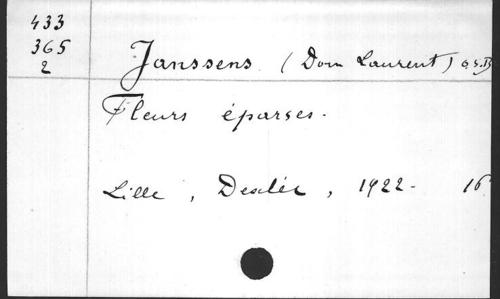 433
365
2
Janssens (Dom Laurent) O.S.B
Fleurs éparses.
Lille, Desclée, 1922- 16